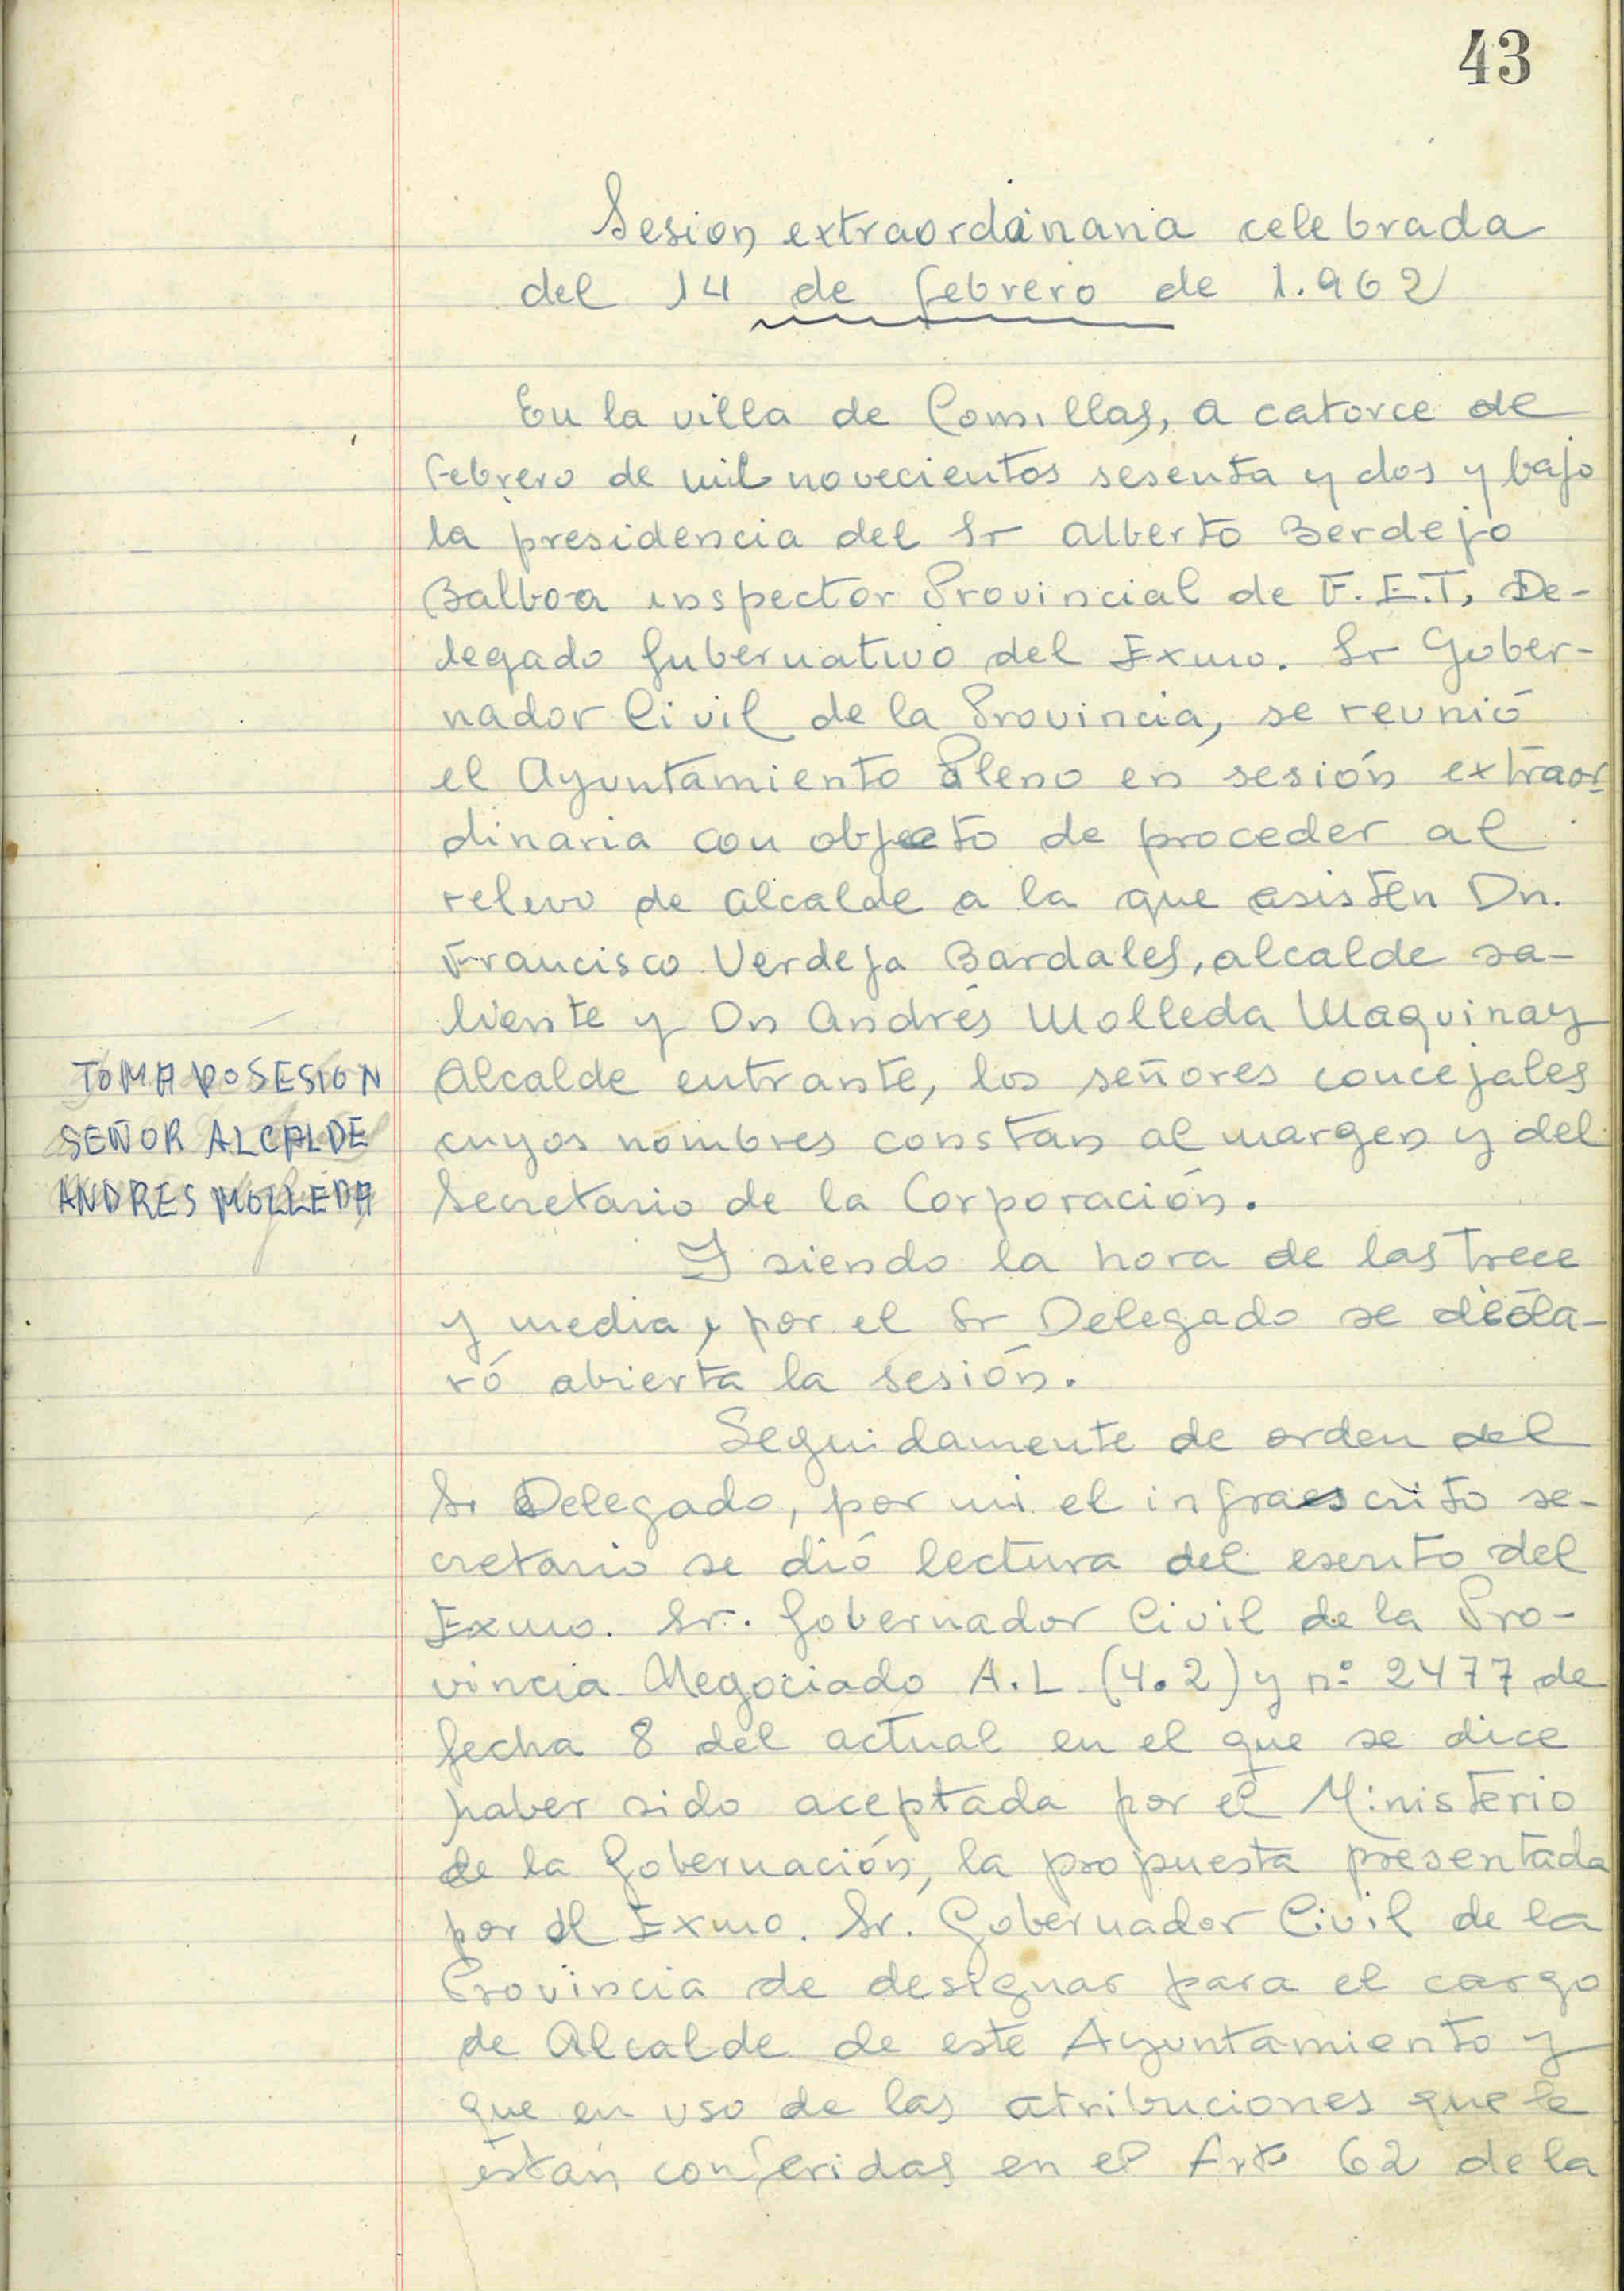 43
Sesion extraordinaria celebrada
del 14 de febrero de 1.962
En la villa de Comillas, a catorce de
febrero de mil novecientos sesenta y dos y bajo
la presidencia del Sr Alberto Berdejo
Balboa inspector Provincial de F.E.T, De-
legado Gubernativo del Exmo. Sr Gober-
nador Civil de la Provincia, se reunió
el Ayuntamiento Pleno en sesión extraor
dinaria con objeto de proceder al
relevo de alcalde a la que asisten Dn.
Francisco Verdeja Bardales, alcalde sa-
liente y Dn Andrés Molleda Maquinay
Alcalde entrante, los señores concejales
cuyos nombres constan al margen y del
Secretario de la Corporación.
TOMA POSESION
SEÑOR ALCALDE
ANDRES MOLLEDA
Y siendo la hora de las trece
y media, por el Sr Delegado se decla-
ró abierta la sesión.
Seguidamente de orden del
Sr Delegado, por mi el infraescrito se-
cretario se dió lectura del escrito del
Exmo. Sr. Gobernador Civil de la Pro-
vincia Negociado A.L (4.2) y nº 2477 de
fecha 8 del actual en el que se dice
haber sido aceptada por el Ministerio
de la Gobernación, la propuesta presentada
por el Exmo. Sr. Gobernador Civil de la
Provincia de designar para el cargo
de Alcalde de este Ayuntamiento y
que en uso de las atribuciones que le
están conferidas en el Art 62 de la